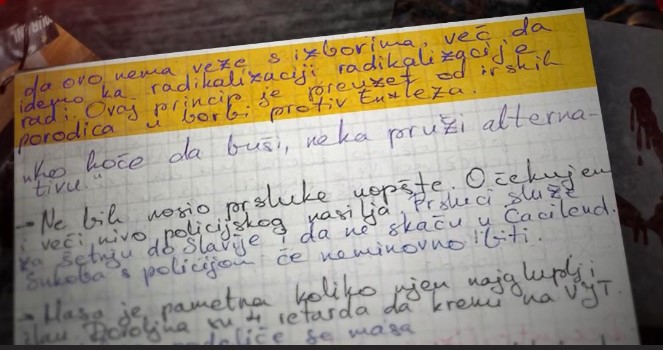 da ovo nema veze s izborima, već da
idemo ka radikalizaciji radikalizacije
radi. Ovaj princip je preuzet od irskih
porodica u borbi protiv Engleza.
uko hoće da buši, neka pruži alterna-
tivu."
→ Ne bih nosio prsluke uopšte. Očekujem
i veći nivo policijskog nasilja Prsluci služe
za šetnju do Slavije i da ne skaču u Cacilend.
Sukoba s policijom će neminovno biti.
→ Masa je pametna koliko njen najgluplji
član Dovoljna su 4 retarda da krenu na
se masa